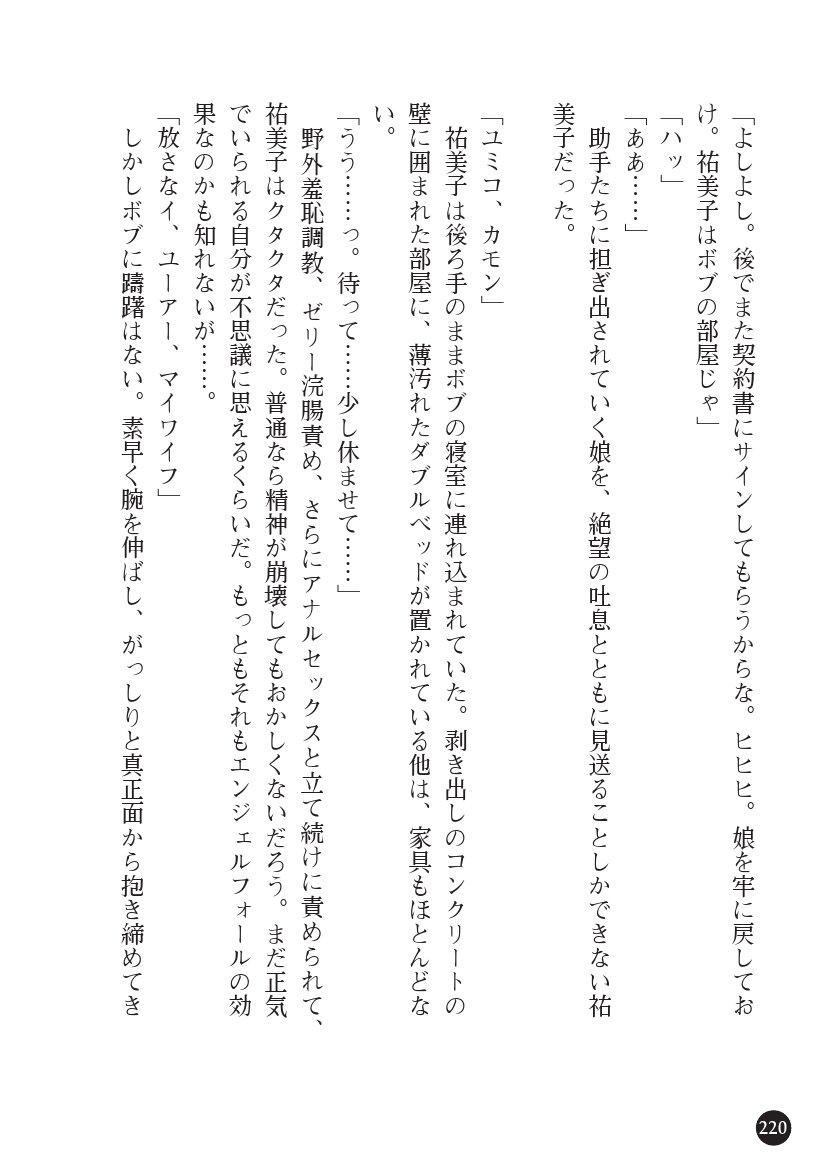 「よしよし。後でまた契約書にサインしてもらうからな。ヒヒヒ。娘を牢に戻してお
け。祐美子はボブの部屋じゃ」
「ハッ」
「ぁあ……」
助手たちに担ぎ出されていく娘を、絶望の吐息とともに見送ることしかできない祐
美子だった。
「ユミコ、カモン」
祐美子は後ろ手のままボブの寝室に連れ込まれていた。剥き出しのコンクリートの
壁に囲まれた部屋に、薄汚れたダブルベッドが置かれている他は、家具もほとんどな
い。
「うう……っ。待って……少し休ませて……」
野外羞恥調教、ゼリー浣腸責め、さらにアナルセックスと立て続けに責められて、
祐美子はクタクタだった。普通なら精神が崩壊してもおかしくないだろう。まだ正気
でいられる自分が不思議に思えるくらいだ。もっともそれもエンジェルフォールの効
果なのかも知れないが……。
「放さなイ、ユーアー、マイワイフ」
しかしボブに躊躇はない。素早く腕を伸ばし、がっしりと真正面から抱き締めてき
220